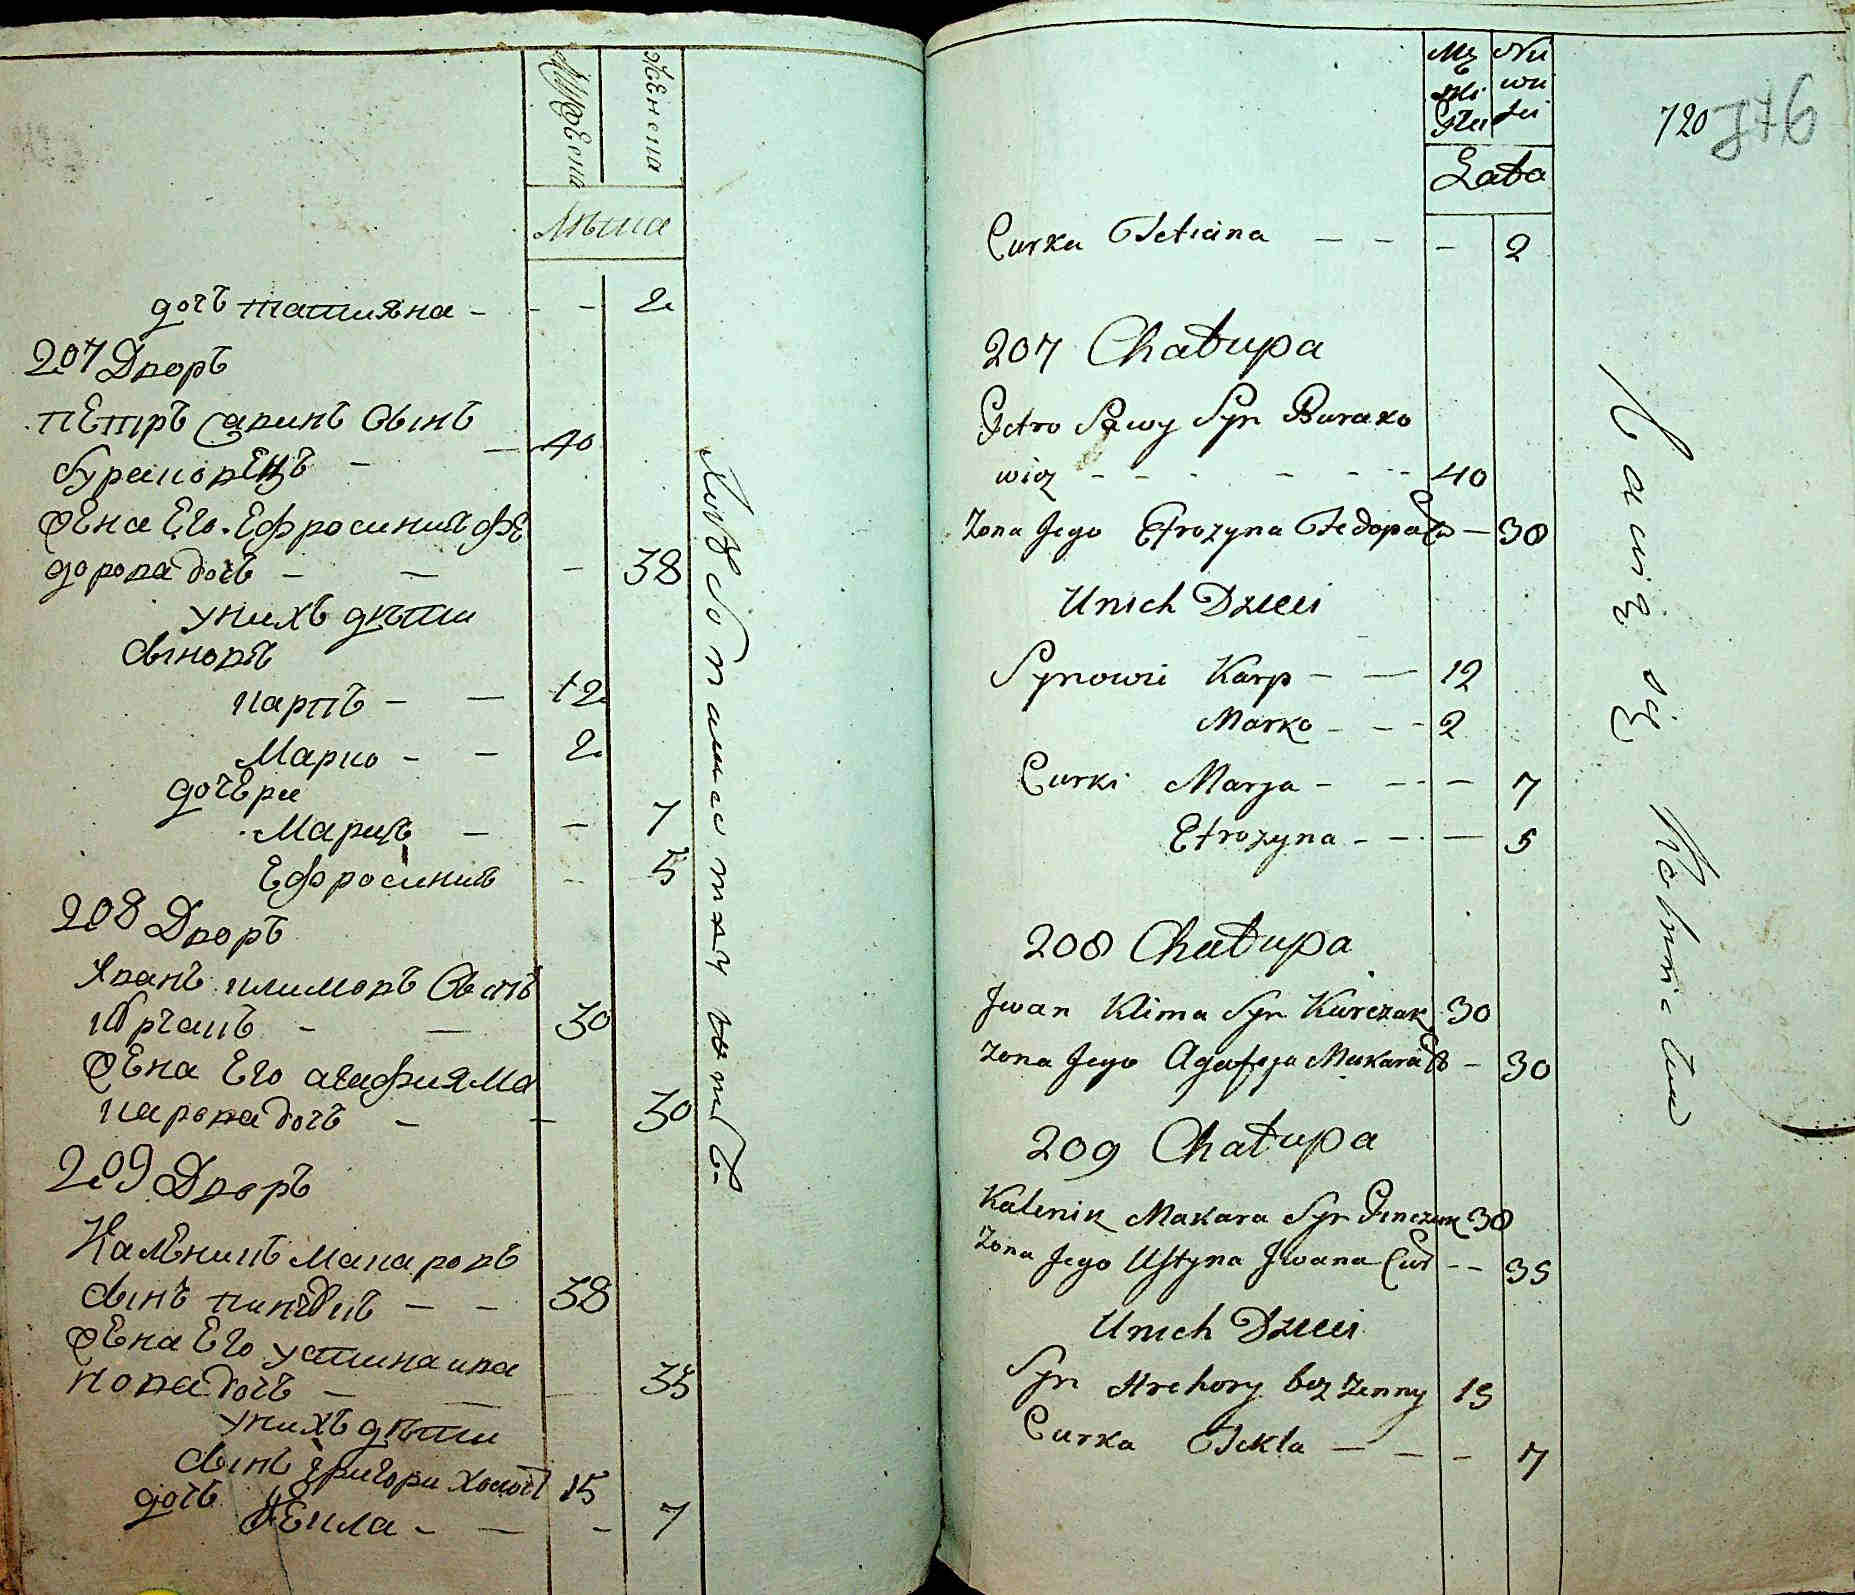 Мужеска
Женска
Лѣта
дочь татияна - - - 2
207 Дворъ
пЕтръ Савинъ Сынъ
бураковецъ - - 40
жЕна Его Ефросиния фЕ
дорова дочь - - - 38
у нихъ дѣти
Сыновя
карпъ - - 12
Марко - - 2
дочЕри
Мария - - 7
Ефросиния - 5
208 Дворъ
Иванъ климовъ Сынъ
курчакъ - - 30
жЕна Его агафия Ма
карова дочь - - 30
209 Дворъ
КалЕникъ макаровъ
Сынъ пинчукъ - - 38
жЕна Его устина ива
нова дочь - - 35
у нихъ дѣти
Сынъ григори холостъ 15
дочь ѳЕкла - - - 7
Męz
ski
Niu
wu
Lata
720
746
Curka Tetiana - - - 2
207 Chałupa
Petro Sawy Syn Burako
wicz - - - - - - 40
Zona Jego Efrozyna Fedora Cu - 38
Unich Dzieci
Synowie Karp - - 12
Marko - - - 2
Curki Marja - - - 7
Efrozyna - - - 5
208 Chałupa
Jwan Klima Syn Kurczak 30
Zona Jego Agafeja Makara C - 30
209 Chałupa
Kalenik Makara Syn Pinczuk 38
Zona Jego Ustyna Jwana Cur - - 35
Unich Dzieci
Syn Hrehory bez Zenny 15
Curka Tekla - - - 7